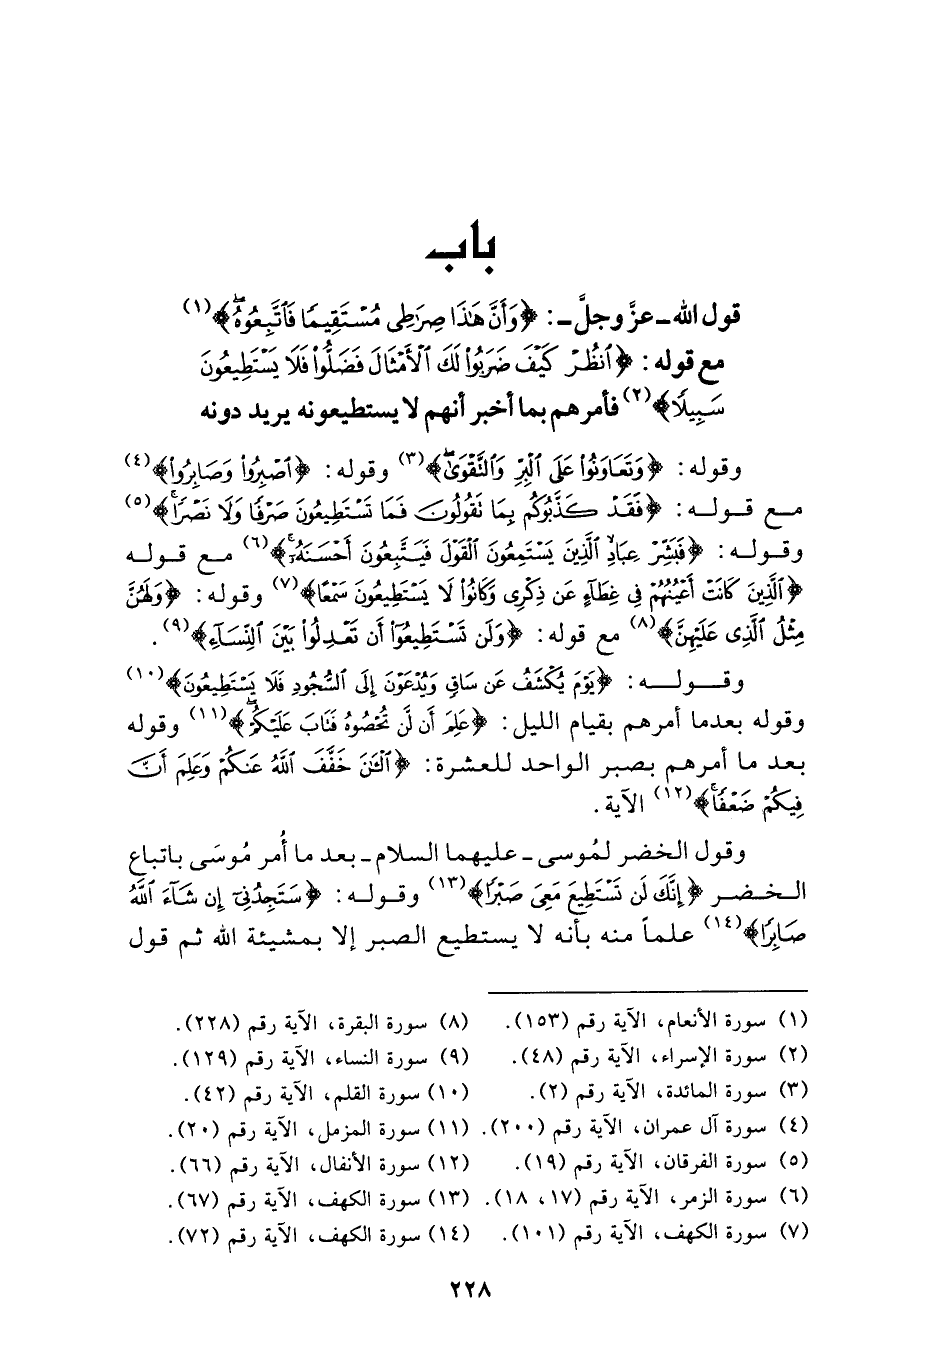 باب
قول الله ـ عزَّ وجلَّ ـ: ﴿وَأَنَّ هَٰذَا صِرَٰطِى مُسْتَقِيمًا فَٱتَّبِعُوهُ ۖ﴾(١)
مع قوله: ﴿ٱنظُرْ كَيْفَ ضَرَبُوا۟ لَكَ ٱلْأَمْثَالَ فَضَلُّوا۟ فَلَا يَسْتَطِيعُونَ
سَبِيلًا﴾(٢) فأمرهم بما أخبر أنهم لا يستطيعونه يريد دونه
وقوله: ﴿وَتَعَاوَنُوا۟ عَلَى ٱلْبِرِّ وَٱلتَّقْوَىٰ ۖ﴾(٣) وقوله: ﴿ٱصْبِرُوا۟ وَصَابِرُوا۟﴾(٤)
مع قوله: ﴿فَقَدْ كَذَّبُوكُم بِمَا تَقُولُونَ فَمَا تَسْتَطِيعُونَ صَرْفًا وَلَا نَصْرًا ۚ﴾(٥)
وقوله: ﴿فَبَشِّرْ عِبَادِ ٱلَّذِينَ يَسْتَمِعُونَ ٱلْقَوْلَ فَيَتَّبِعُونَ أَحْسَنَهُۥٓ ۚ﴾(٦) مع قوله
﴿ٱلَّذِينَ كَانَتْ أَعْيُنُهُمْ فِى غِطَآءٍ عَن ذِكْرِى وَكَانُوا۟ لَا يَسْتَطِيعُونَ سَمْعًا﴾(٧) وقوله: ﴿وَلَهُنَّ
مِثْلُ ٱلَّذِى عَلَيْهِنَّ﴾(٨) مع قوله: ﴿وَلَن تَسْتَطِيعُوٓا۟ أَن تَعْدِلُوا۟ بَيْنَ ٱلنِّسَآءِ﴾(٩).
وقوله: ﴿يَوْمَ يُكْشَفُ عَن سَاقٍ وَيُدْعَوْنَ إِلَى ٱلسُّجُودِ فَلَا يَسْتَطِيعُونَ﴾(١٠)
وقوله بعدما أمرهم بقيام الليل: ﴿عَلِمَ أَن لَّن تُحْصُوهُ فَتَابَ عَلَيْكُمْ ۖ﴾(١١) وقوله
بعد ما أمرهم بصبر الواحد للعشرة: ﴿ٱلْـَٰٔنَ خَفَّفَ ٱللَّهُ عَنكُمْ وَعَلِمَ أَنَّ
فِيكُمْ ضَعْفًا ۚ﴾(١٢) الآية.
وقول الخضر لمُوسى ـ عليهما السلام ـ بعد ما أُمر مُوسَى باتباع
الخضر ﴿إِنَّكَ لَن تَسْتَطِيعَ مَعِىَ صَبْرًا﴾(١٣) وقوله: ﴿سَتَجِدُنِىٓ إِن شَآءَ ٱللَّهُ
صَابِرًا﴾(١٤) علماً منه بأنه لا يستطيع الصبر إلا بمشيئة الله ثم قول
(١) سورة الأنعام، الآية رقم (١٥٣).
(٢) سورة الإسراء، الآية رقم (٤٨).
(٣) سورة المائدة، الآية رقم (٢).
(٤) سورة آل عمران، الآية رقم (٢٠٠).
(٥) سورة الفرقان، الآية رقم (١٩).
(٦) سورة الزمر، الآية رقم (١٧، ١٨).
(٧) سورة الكهف، الآية رقم (١٠١).
(٨) سورة البقرة، الآية رقم (٢٢٨).
(٩) سورة النساء، الآية رقم (١٢٩).
(١٠) سورة القلم، الآية رقم (٤٢).
(١١) سورة المزمل، الآية رقم (٢٠).
(١٢) سورة الأنفال، الآية رقم (٦٦).
(١٣) سورة الكهف، الآية رقم (٦٧).
(١٤) سورة الكهف، الآية رقم (٧٢).
٢٢٨